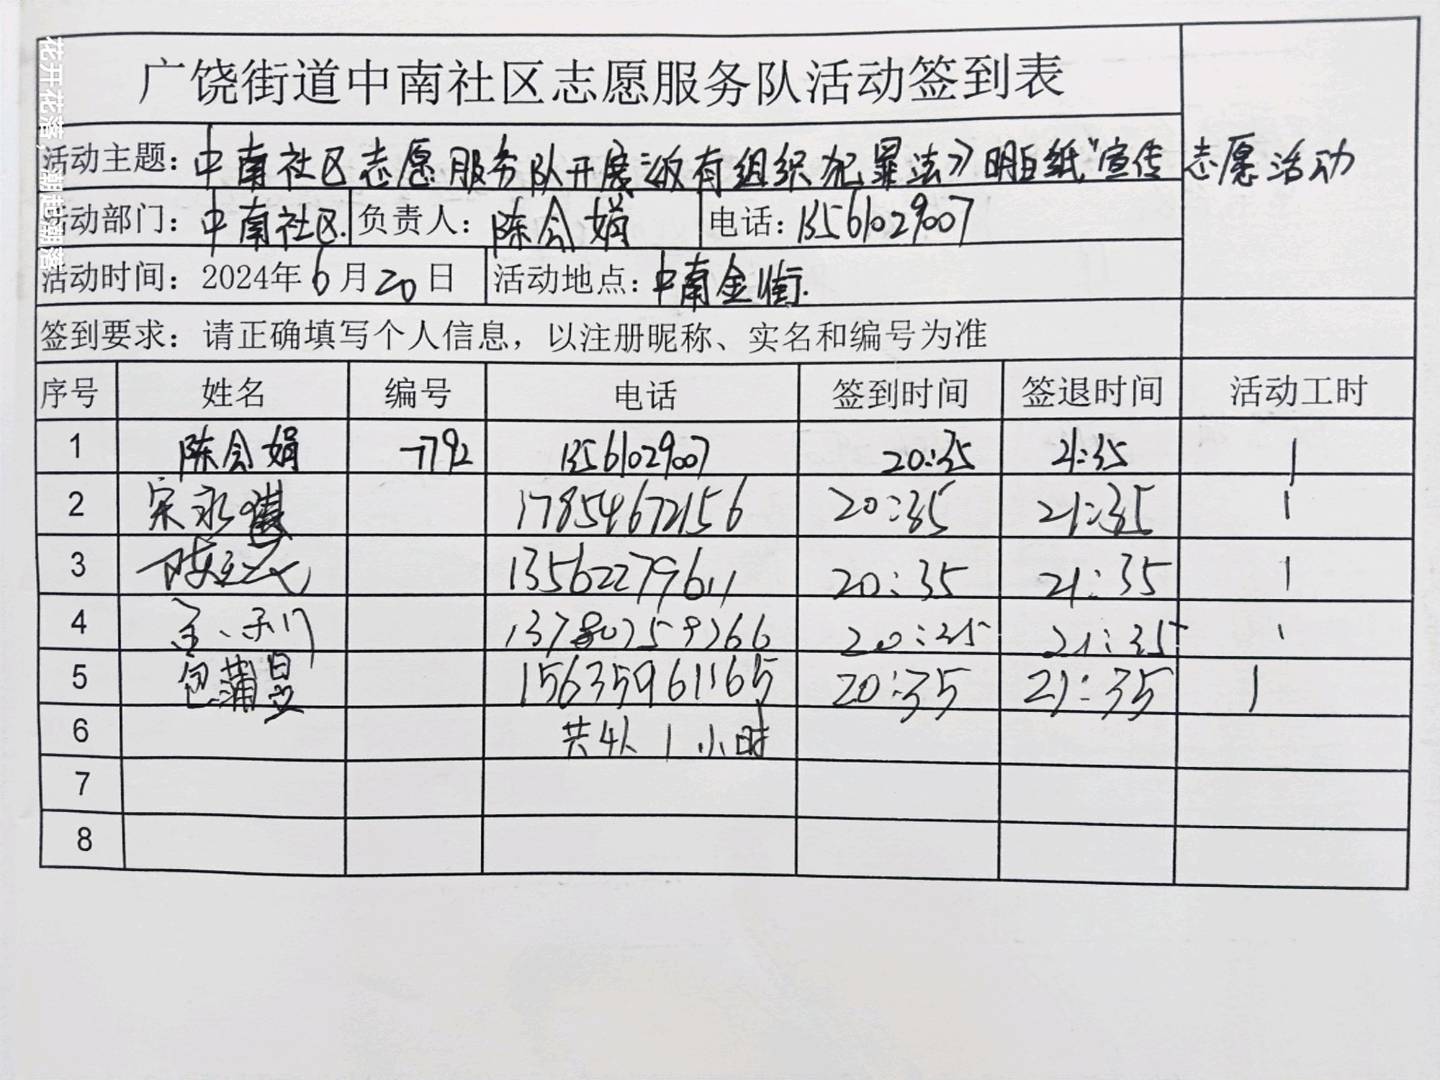 花开花落，潮起潮落
广饶街道中南社区志愿服务队活动签到表
活动主题：中南社区志愿服务队开展《反有组织犯罪法》明白纸"宣传志愿活动
活动部门：中南社区. 负责人：陈会娟 电话：13561029007
活动时间：2024年6月20日 活动地点：中南金街.
签到要求：请正确填写个人信息，以注册昵称、实名和编号为准
序号 姓名 编号 电话 签到时间 签退时间 活动工时
1 陈会娟 -7792 13561029007 20:35 21:35 1
2 宋永 17854672156 20:35 21:35 1
3 13562279611 20:35 21:35 1
4 20:35 21:35 1
5 包蒲昱 15635961165 20:35 21:35 1
6 共4人 1小时
7
8